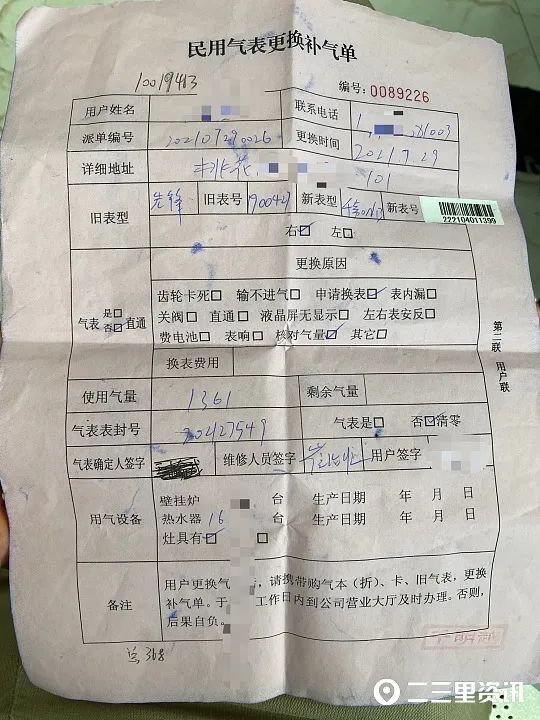 民用气表更换补气单
10019413
编号:0089226
用户姓名 联系电话 1
派单编号 202107290026 更换时间 2021.7.29
详细地址 101
旧表型 先锋 旧表号 新表型 新表号 222104011399
右☑ 左□
更换原因
气表 是□ 否☑ 直通
齿轮卡死□ 输不进气□ 申请换表☑ 表内漏□
关阀□ 直通□ 液晶屏无显示□ 左右表安反□
费电池□ 表响□ 核对气量☑ 其它□
换表费用
使用气量 1361 剩余气量
气表表封号 气表是□ 否☑清零
气表确定人签字 维修人员签字 用户签字
用气设备
壁挂炉 台 生产日期 年 月 日
热水器 16 台 生产日期 年 月 日
灶具有☑ □
备注
用户更换气 ,请携带购气本(折)、卡、旧气表,更换
补气单。于 工作日内到公司营业大厅及时办理。否则,
后果自负。
第二联 用户联
368
二三里资讯